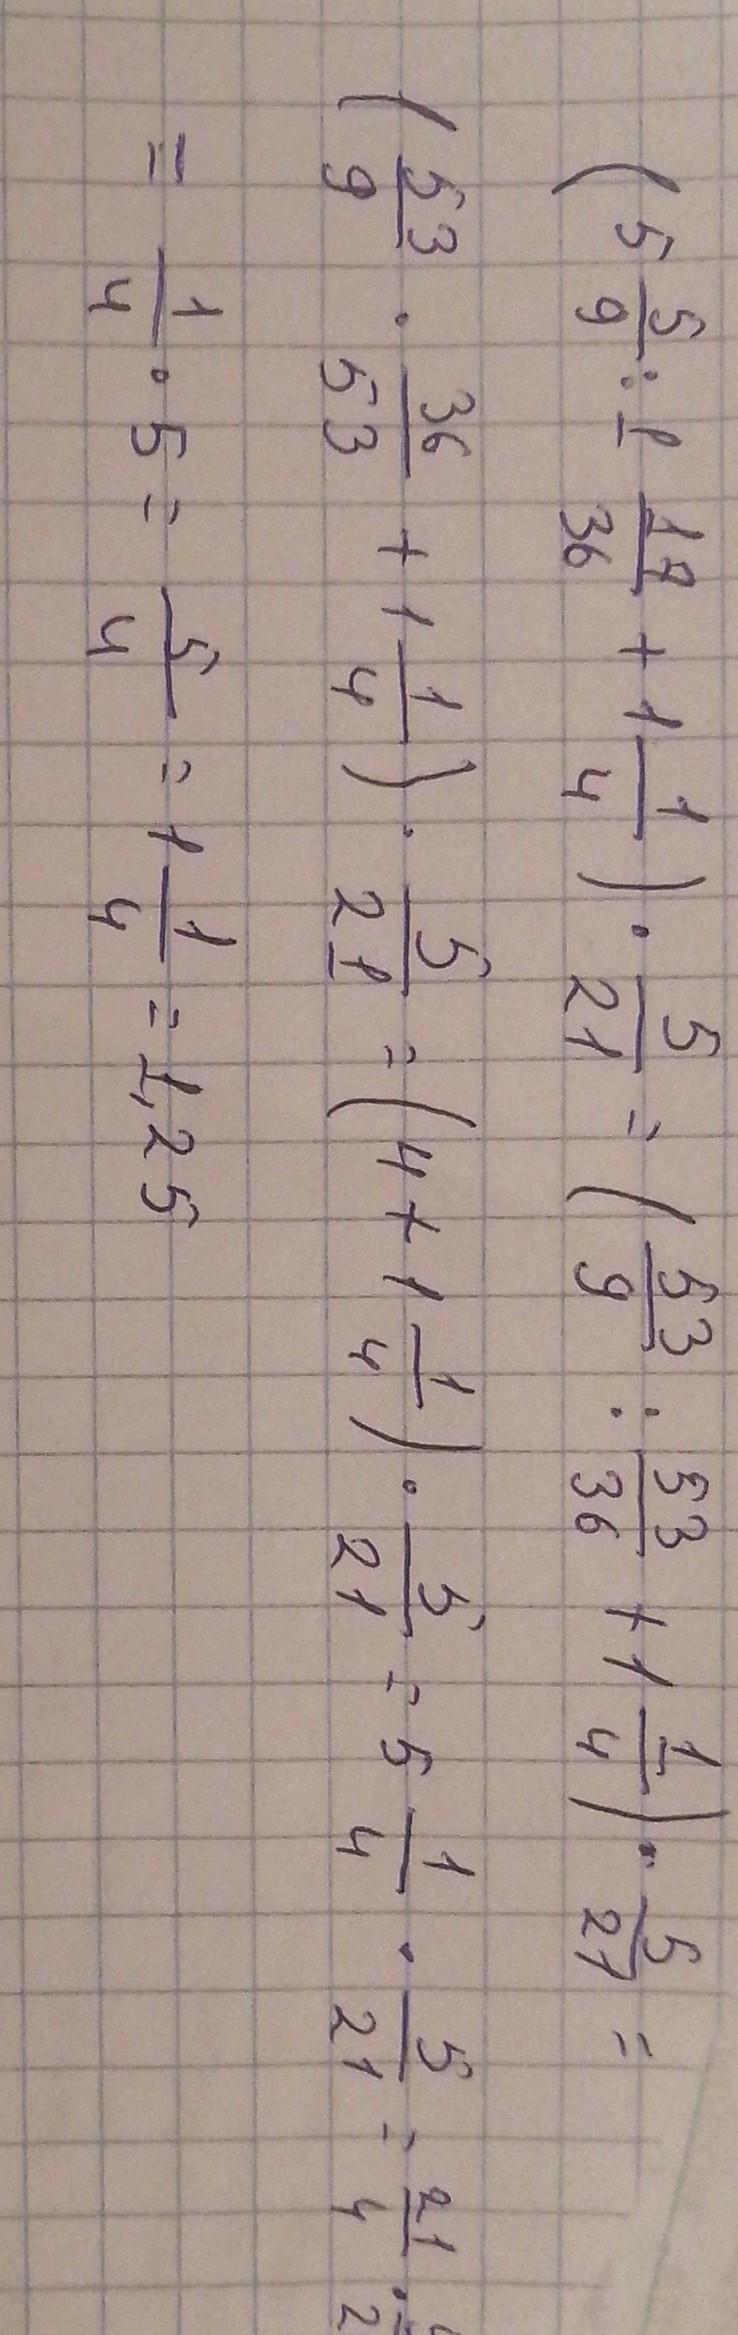 (5 5/9 : 1 17/36 + 1 1/4) · 5/21 = (53/9 : 53/36 + 1 1/4) · 5/21 =
(53/9 · 36/53 + 1 1/4) · 5/21 = (4 + 1 1/4) · 5/21 = 5 1/4 · 5/21 = 21/4 ·
= 1/4 · 5 = 5/4 = 1 1/4 = 1,25